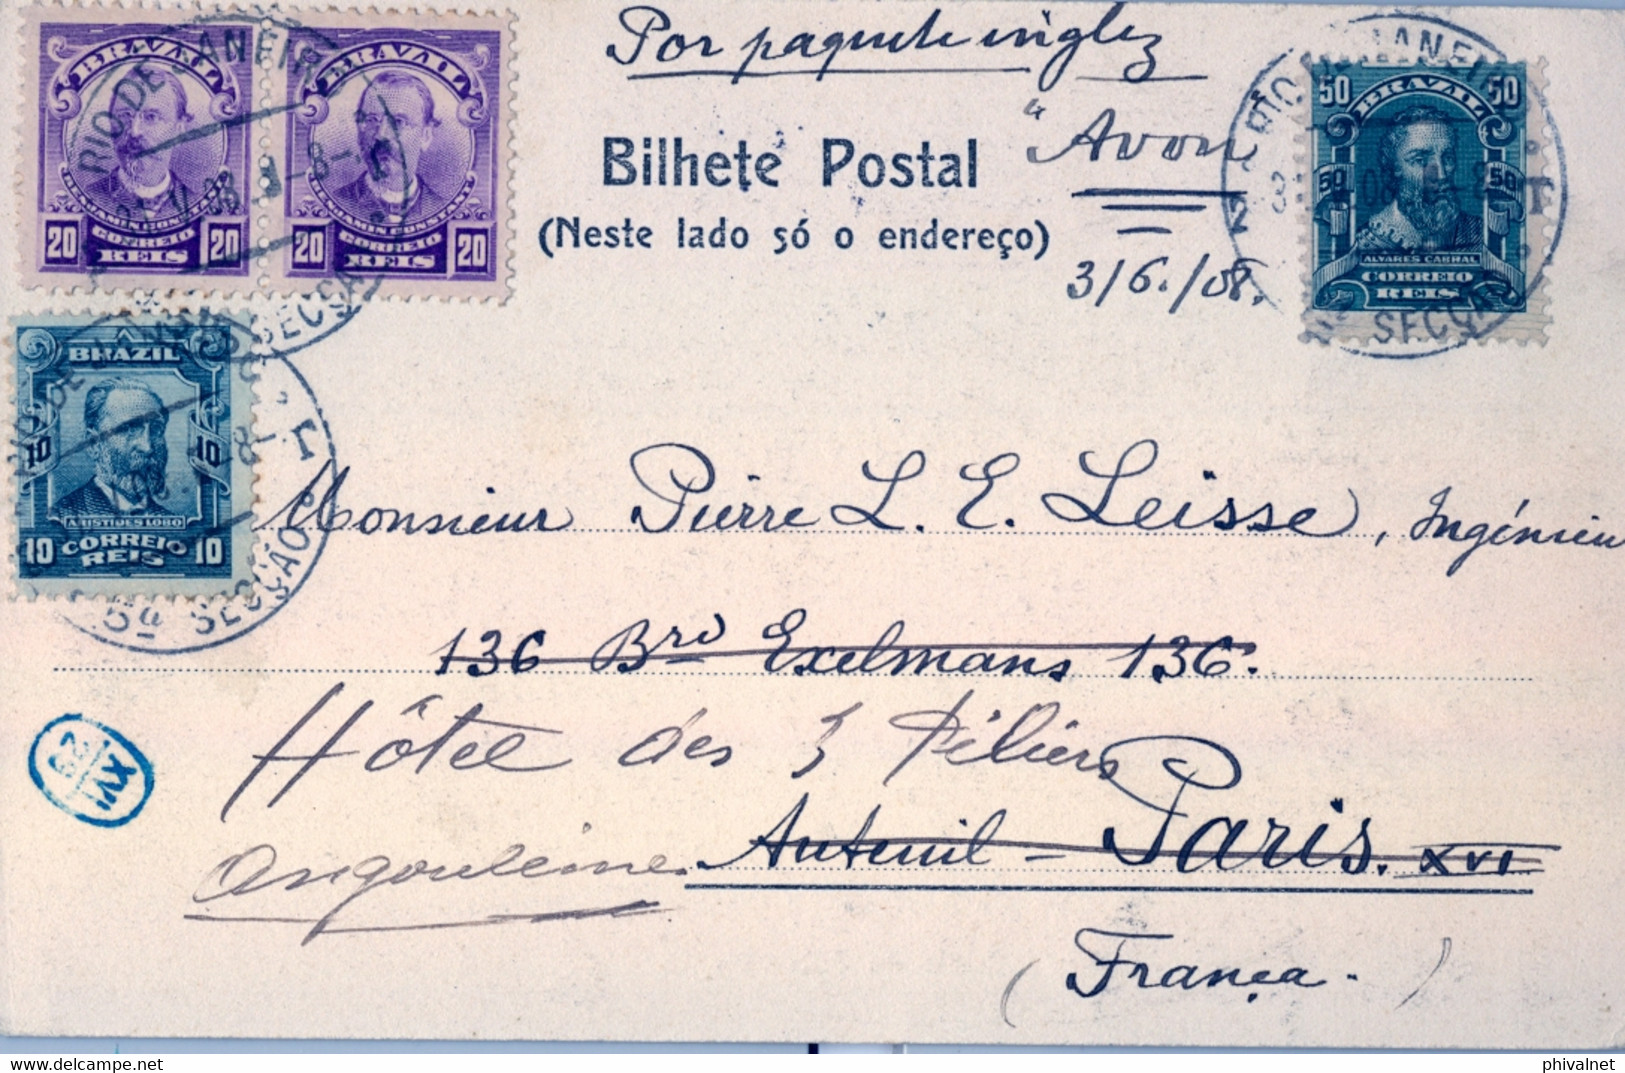 Por paquete inglez
"Avon"
3/6./08.
Bilhete Postal
(Neste lado só o endereço)
BRAZIL
BENJAMIN CONSTANT
20 CORREIO 20
REIS
BRAZIL
BENJAMIN CONSTANT
20 CORREIO 20
REIS
RIO DE JANEIRO
SECÇÃO
50 BRAZIL 50
50 50
ALVARES CABRAL
CORREIO
REIS
RIO DE JANEIRO
SECÇÃO
T
BRAZIL
10 10
ARISTIDES LOBO
10 CORREIO 10
REIS
RIO DE JANEIRO
5ª SECÇÃO
T
Monsieur Pierre L. E. Leisse, Ingénieur
136 Brd Exelmans 136.
Hôtel des 3 Piliers
Auteuil - Paris. XVI
Angoulême
(França.)
XVI
23
Delcampe.net
phivalnet